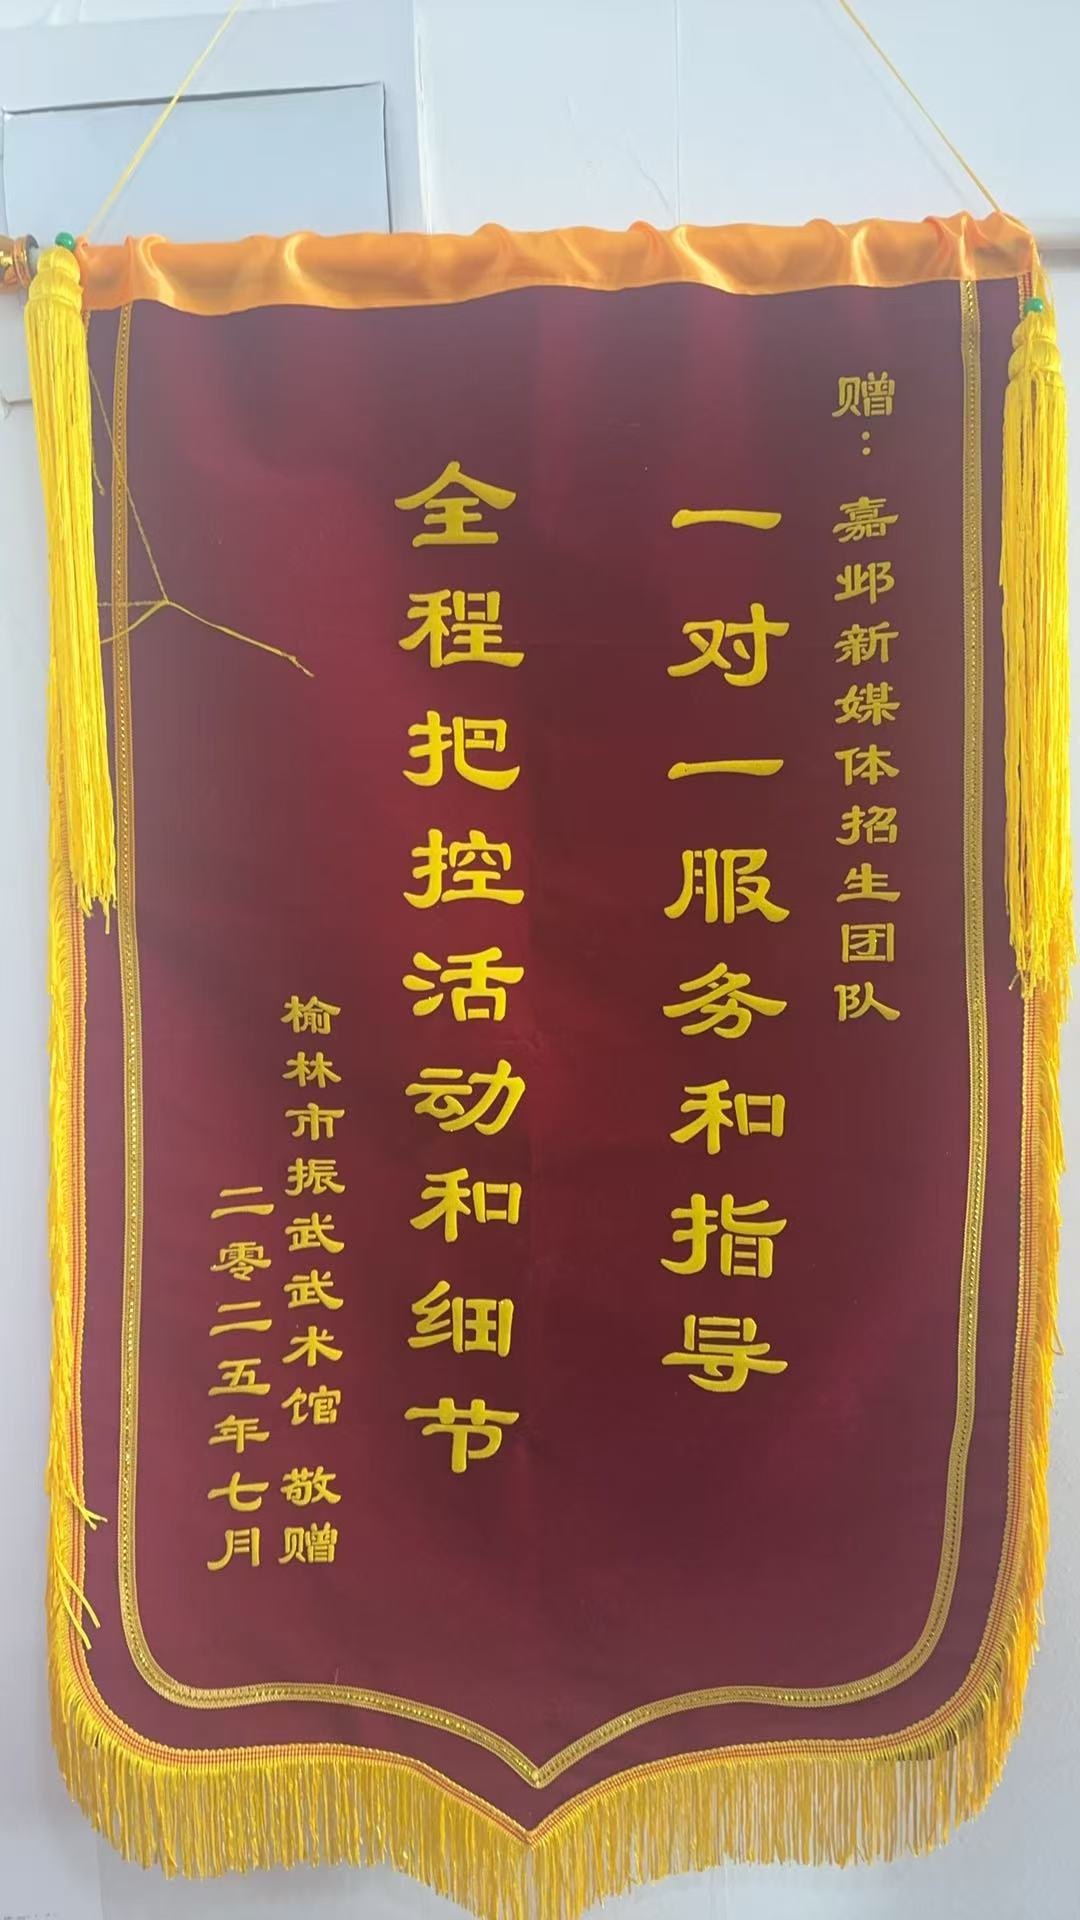 赠：嘉邺新媒体招生团队
一对一服务和指导
全程把控活动和细节
榆林市振武武术馆 敬赠
二零二五年七月